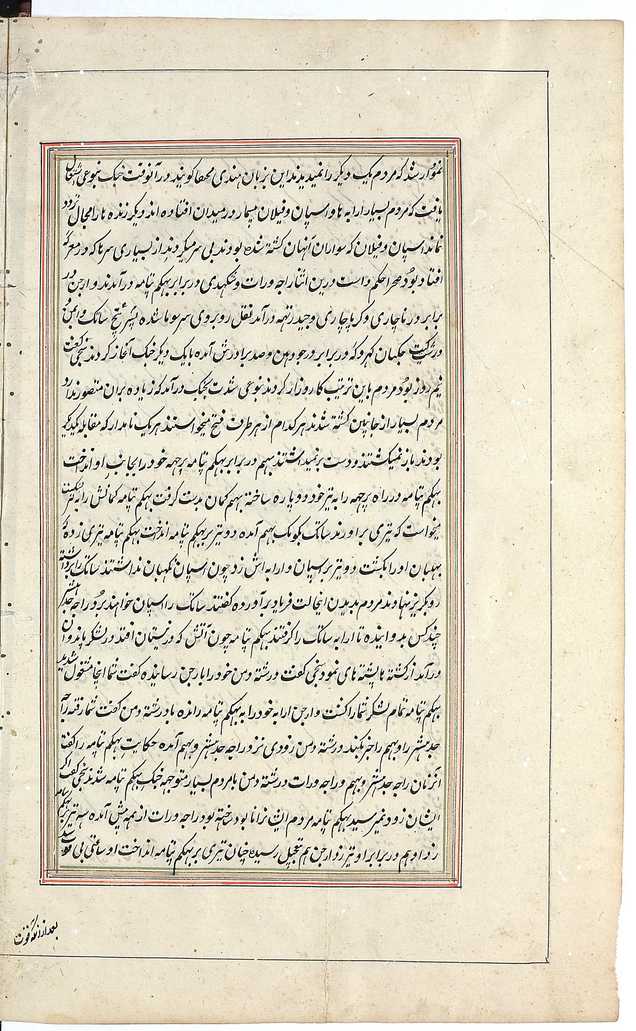 نمودار شد که مردم یک دیگر را نمیدیدند این بزبان هندی محفا گویند در آنوقت جنک بنوعی اشتعال
یافت که مردم بسیار ارابه ها و اسپان و فیلان بیشمار در میدان افتاده اند دیگر زنده ها را مجال تردد
نماند اسپان و فیلان که سواران آنهان کشته شده بودند بی سر میکردند از بسیاری سرها که در معرکه
افتاد بود صحرا حکم داست درین اثنا راجه ورات و شکهندی در برابر بهیکم پتامه درآمدند و ارجن در
برابر در ناچاری و کرپاچاری و جیدرتهه درآمد نقل روبروی سرسوما شده پسر پنج ساتک و
در شکست جکیان کهروکه در برابر درجودهن و صد برادرش آمده بایک دیگر جنک آغاز کردند سنجی گفت
نیم روز بود مردم باین ترتیب کارزار کردند نوعی شدت بجنک درآمد که زیاده بران متصور ندارد
مردم بسیار از جانبین کشته شدند هر کدام از هر طرف فتح میخواستند هر یک نامدار که مقابله یکدیگر
بودند باز نمیکشتند و دست بر نمیداشتند بهیم در برابر بهیکم پتامه برجهه خود را بجانب او انداخت
بهیکم پتامه در راه برجهه را به تیر خود دو پاره ساخته بهیم کمان بدست گرفت بهیکم پتامه کمانش را به تیر شکست
میخواست که تیری براورند ساتک بکومک بهیم آمده دو تیر بر بهیکم پتامه انداخت بهیکم پتامه تیری زده
بهلبان او را بکشت و دو تیر بر اسپان و ارابه اش زد چون اسپان نکهبان نداشتند ساتک را برداشته
رو بگریز نهادند مردم بدیدن اینحالت فریاد برآورده گفتند ساتک را اسپان خواهند برد راجه جدهشتر
چند کس بدوانیده تا ارابه ساتک را گرفتند بهیکم پتامه چون آتش که در نیستان افتد در لشکر پاندوان
درآمد از کشته ها پشته های نمود سنجی گفت درشته دمن خود را بارجن رسانیده گفت شما اینجا مشغول شدید
بهیکم پتامه تمام لشکر شما را کشت و ارجن ارابه خود را به بهیکم پتامه رانده با درشته دمن گفت شما رفته راجه
جدهشتر را و بهیم را خبر بکنید درشته دمن بزودی نزد راجه جدهشتر و بهیم آمده حکایت بهیکم پتامه را گفت
آنزمان راجه جدهشتر و بهیم و راجه ورات و درشته دمن با مردم بسیار متوجه جنک بهیکم پتامه شدند سنجی گفت اگر
ایشان زود نمیرسید بهیکم پتامه مردم ایشانرا نابود ساخته بود راجه ورات از همه پیش آمده سه تیر بر بهیکم پتامه
زد او هم در برابر او تیر زد ارجن هم بتعجیل رسیده چنان تیری بر بهیکم پتامه انداخت او ساعتی بی هوش شد
بعد از آنکه قوت